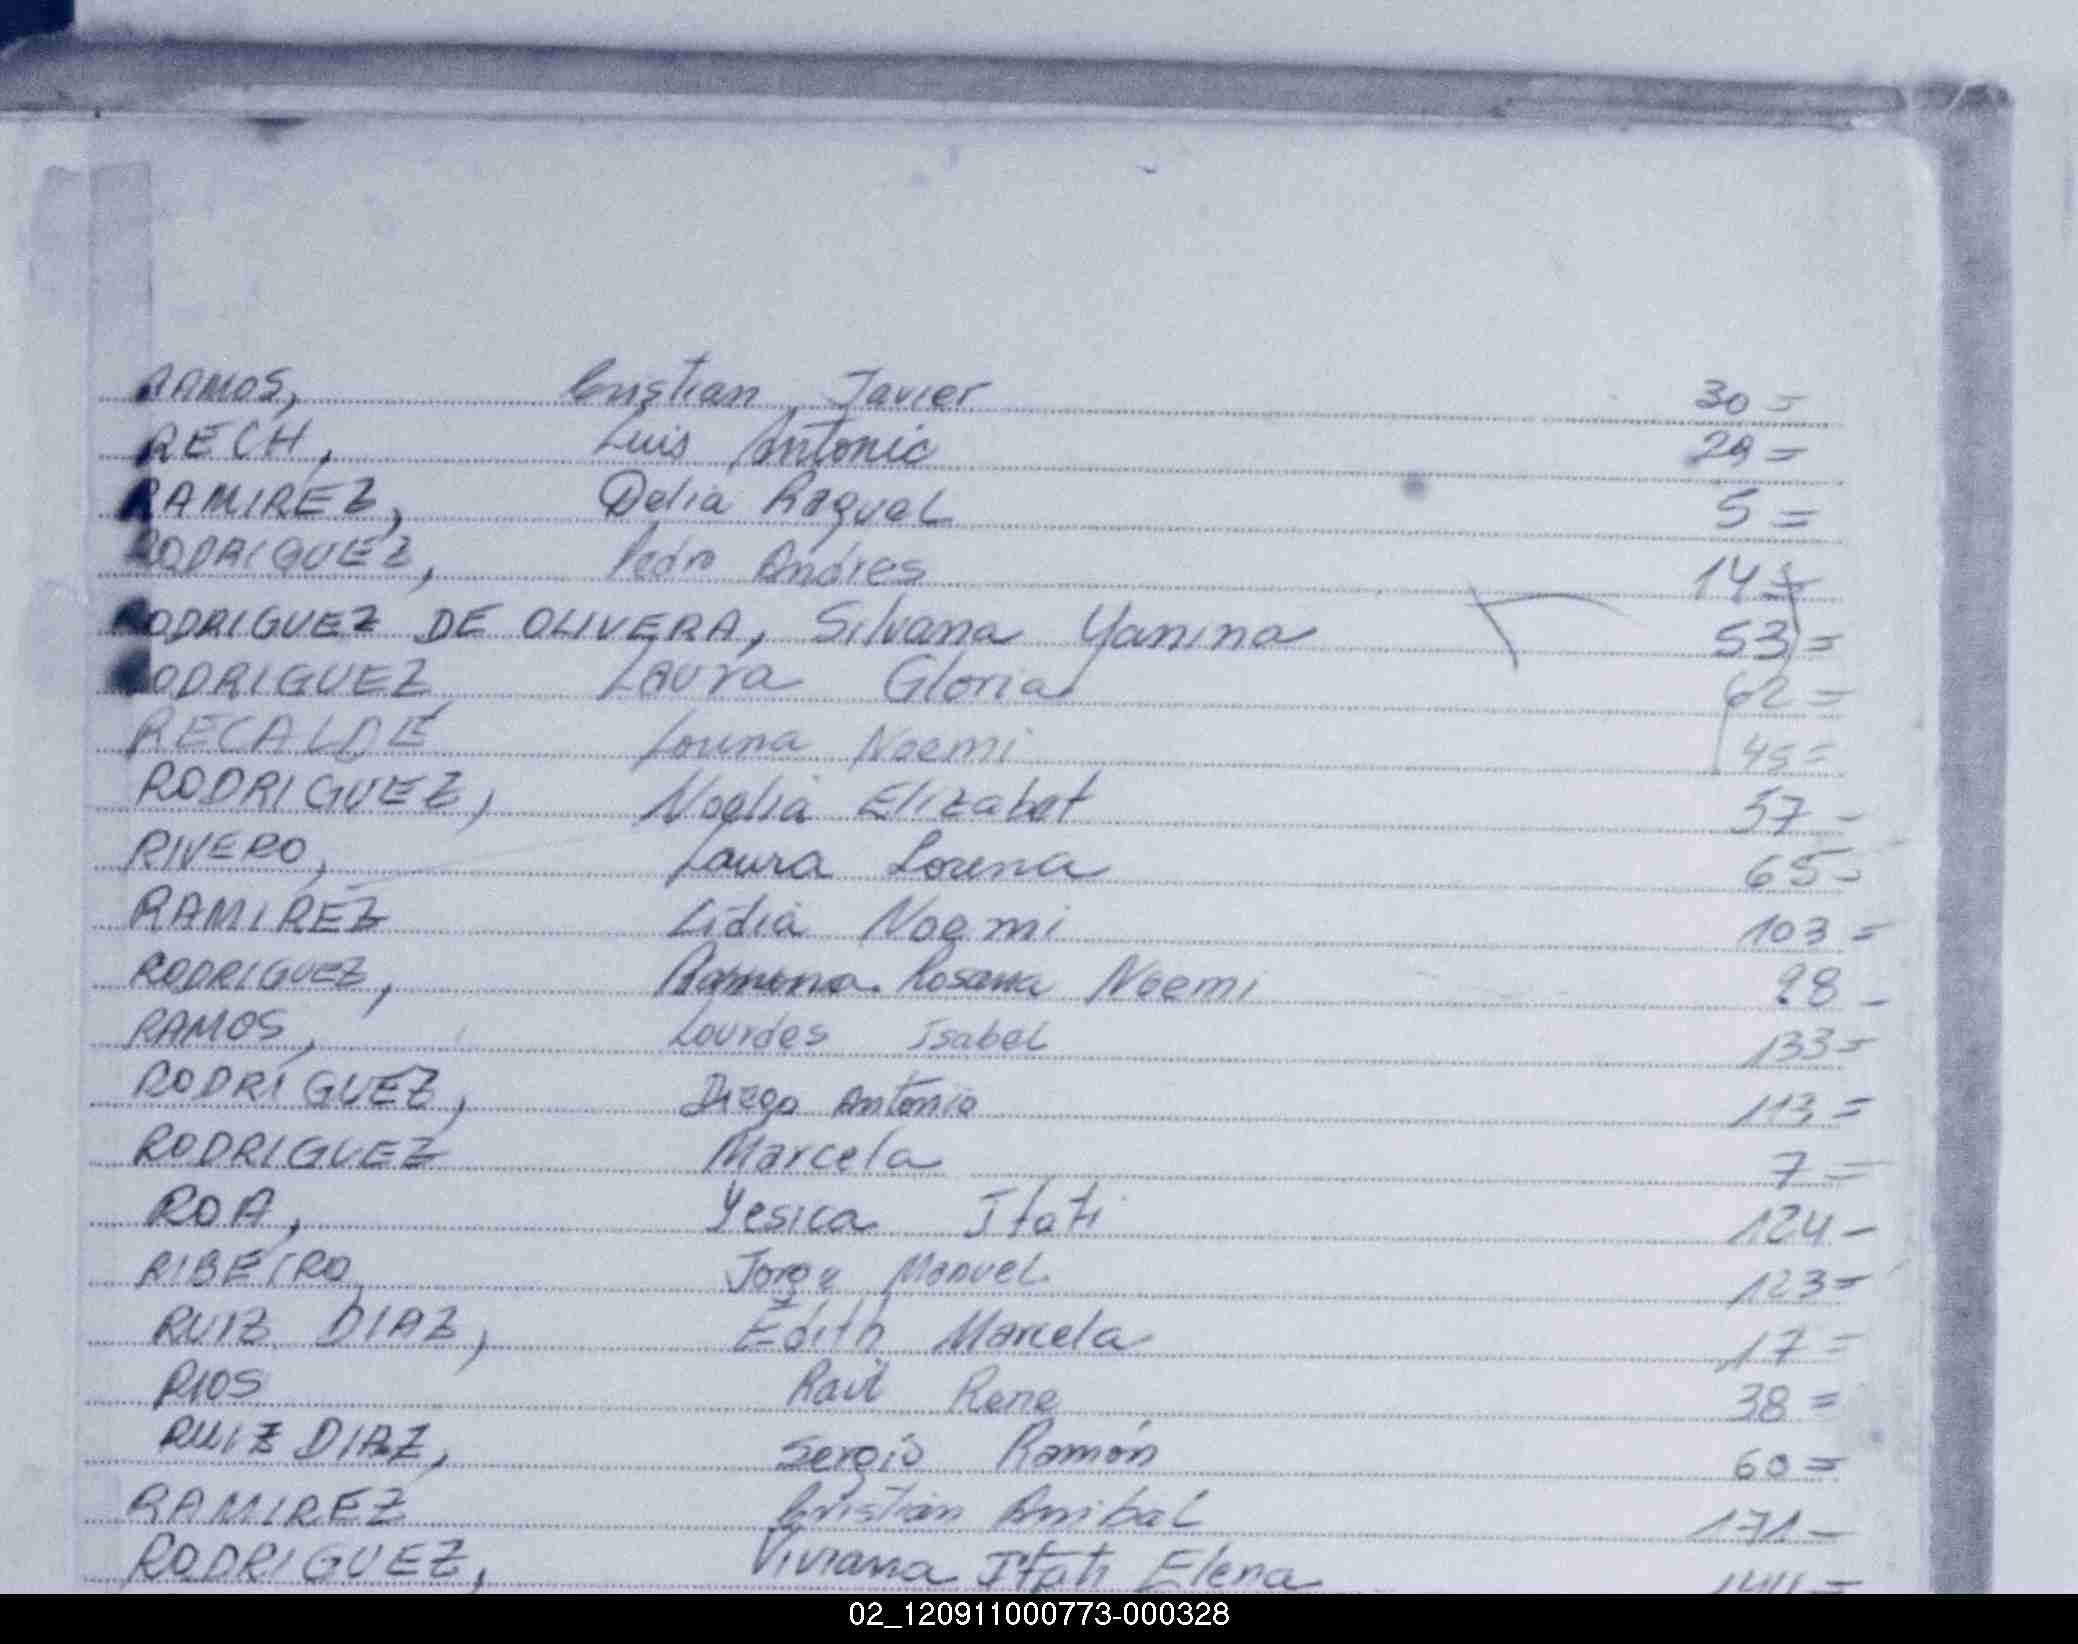 RAMOS, Cristian Javier 30=
RECH, Luis Antonio 29=
RAMIREZ, Delia Raquel 5=
RODRIGUEZ, Pedro Andres 14=
RODRIGUEZ DE OLIVERA, Silvana Yanina 53=
RODRIGUEZ, Laura Gloria 62=
RECALDE Lorena Noemi 45=
RODRIGUEZ, Noelia Elizabet 57-
RIVERO, Laura Lorena 65-
RAMIREZ Lidia Noemi 103=
RODRIGUEZ, Ramona Rosana Noemi 98-
RAMOS, Lourdes Isabel 133=
RODRIGUEZ, Diego Antonio 113=
RODRIGUEZ Marcela 7=
ROA, Yesica Itati 124-
RIBEIRO, Jorge Manuel 123=
RUIZ DIAZ, Edith Marcela 17=
RIOS Raúl Rene 38=
RUIZ DIAZ, Sergio Ramón 60=
RAMIREZ Cristian Anibal 171-
RODRIGUEZ, Viviana Itati Elena
02_120911000773-000328